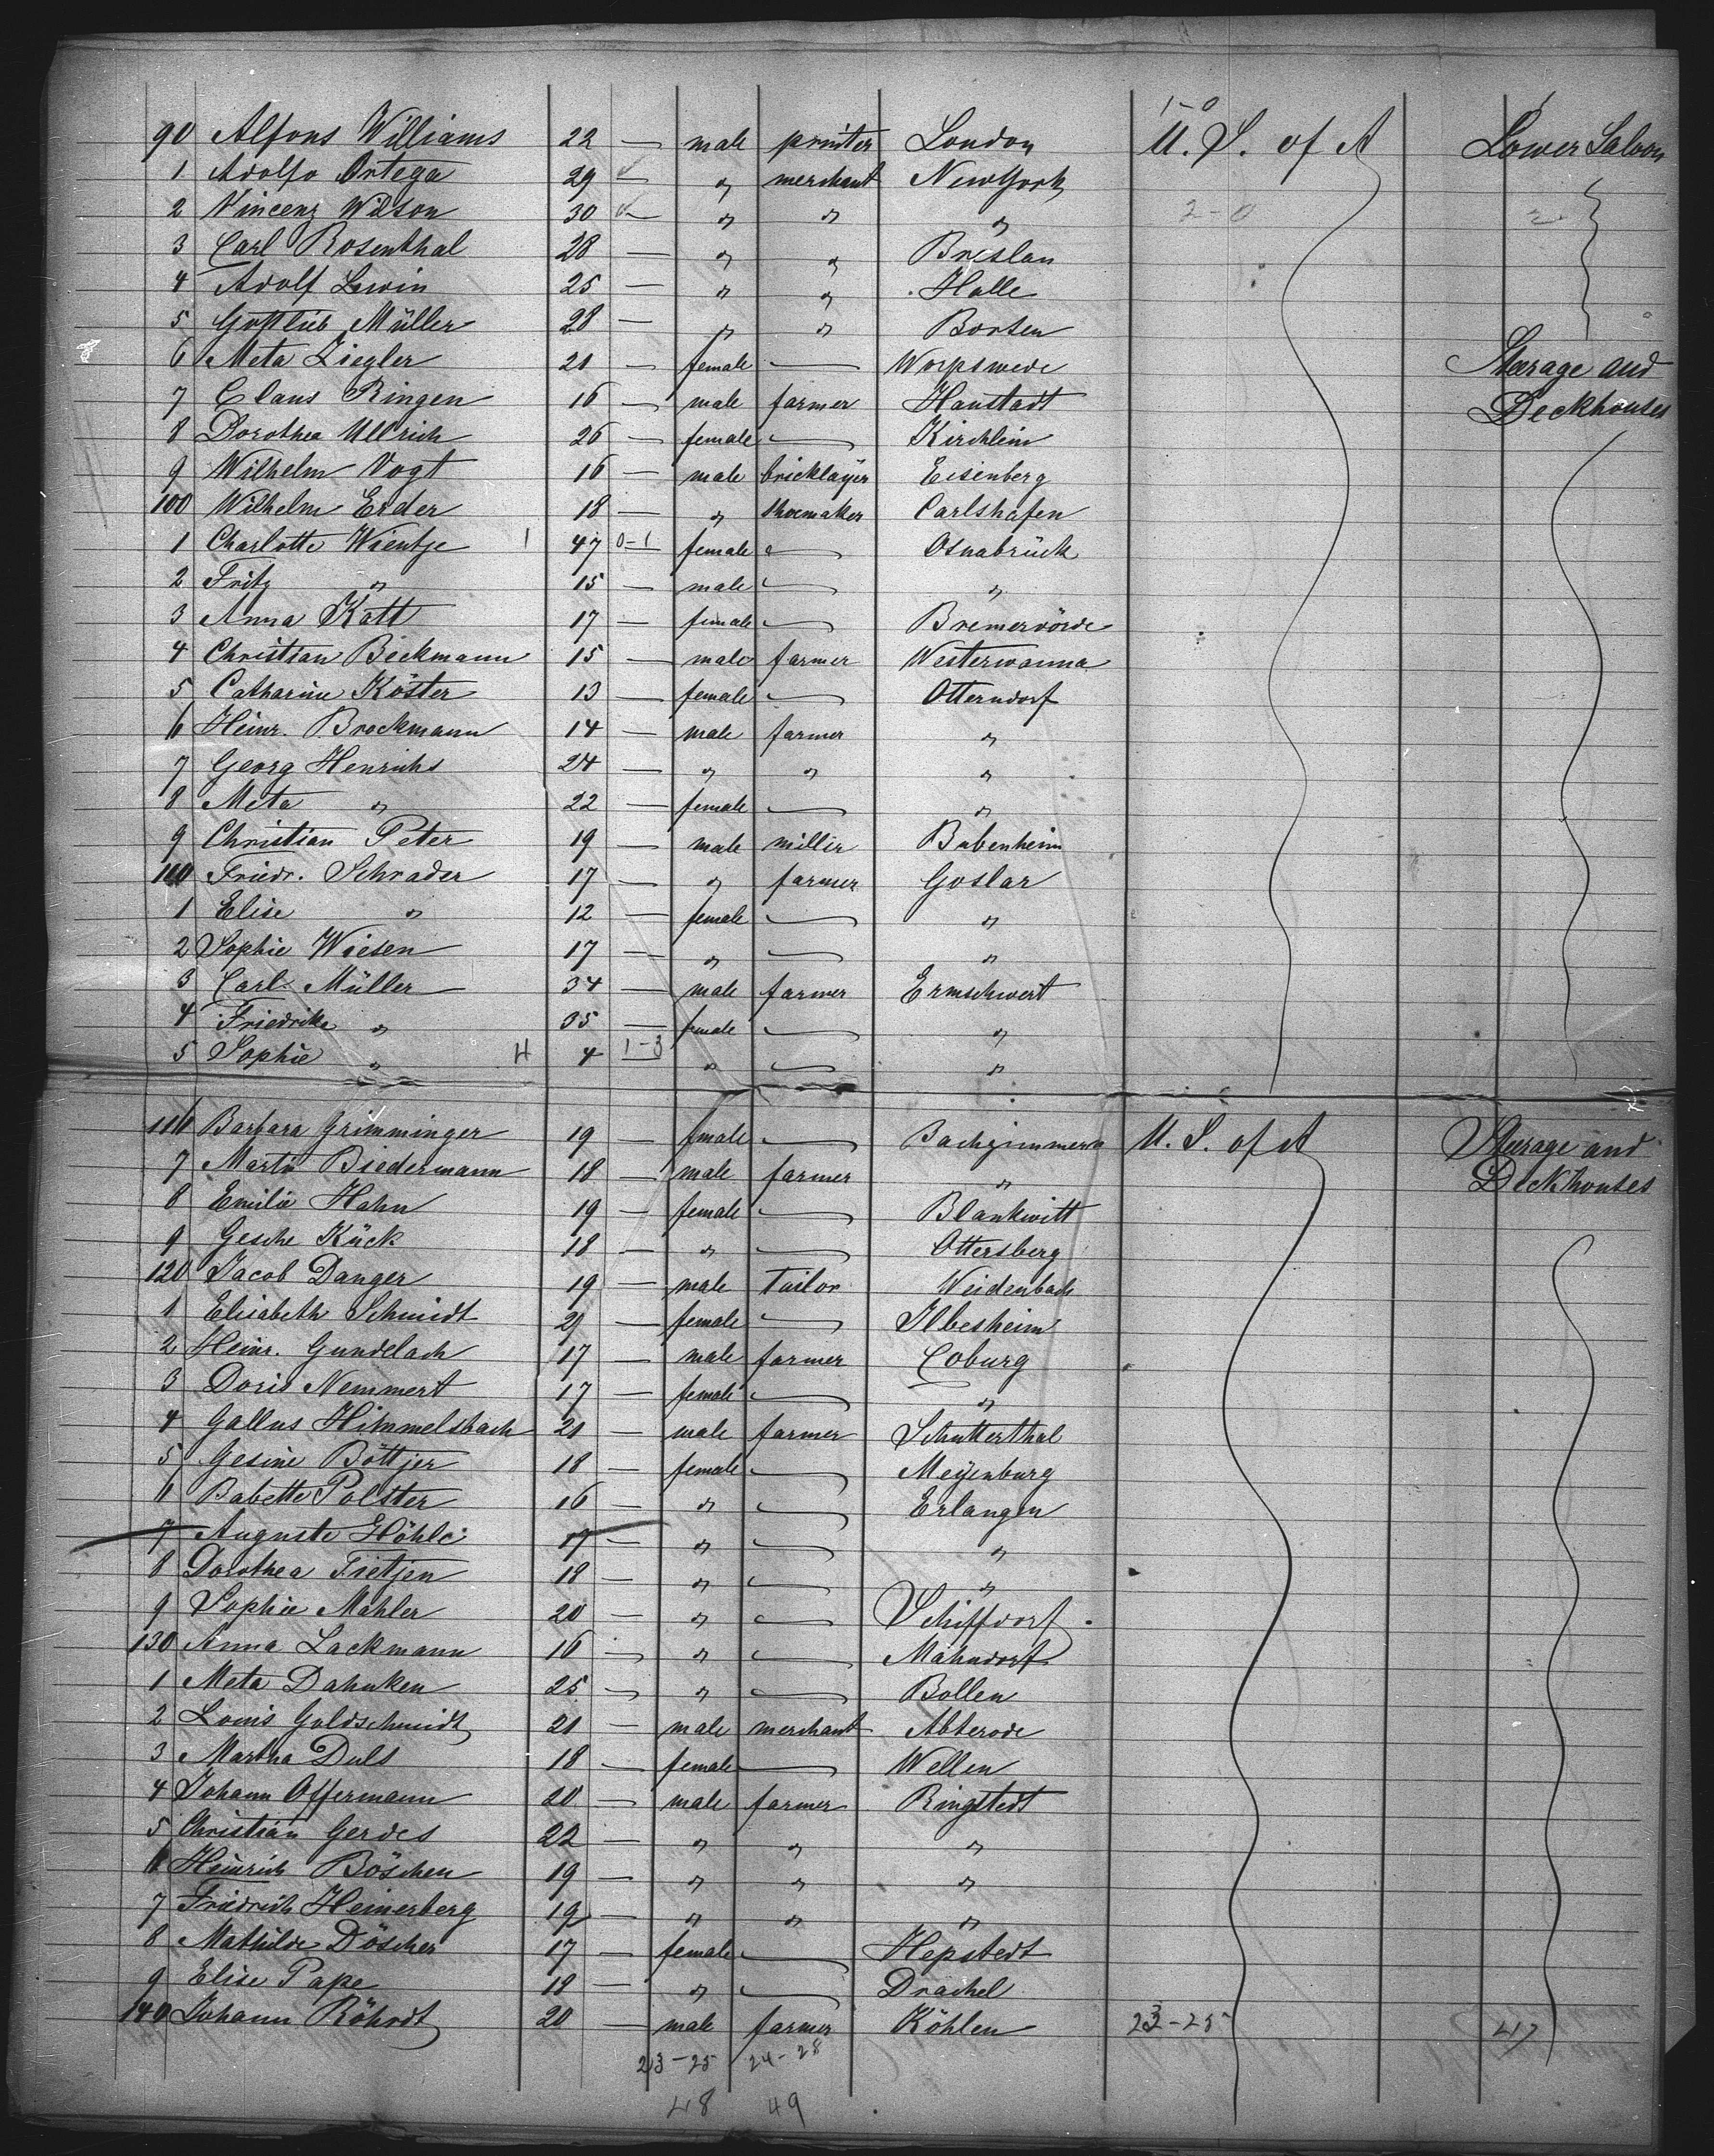 1-0
90 Alfons Williams 22 — male printer London U. S. of A Lower Saloon
1 Adolfo Ortega 29 — " merchant New York
2 Vincenz Wilson 30 — " " " 2-0
3 Carl Rosenthal 28 — " " Breslau
4 Adolf Lewin 25 — " " Halle
5 Gottlieb Müller 28 — " " Borsen
6 Meta Ziegler 21 — female — Worpswede Steerage and
7 Claus Ringen 16 — male farmer Hanstadt Deckhouses
8 Dorothea Ullrich 26 — female — Kirchlein
9 Wilhelm Vogt 16 — male bricklayer Eisenberg
100 Wilhelm Erder 18 — " shoemaker Carlshafen
1 Charlotte Wientje 1 47 0-1 female — Osnabrück
2 Fritz " 15 — male — "
3 Anna Katt 17 — female — Bremervörde
4 Christian Beckmann 15 — male farmer Westerwanna
5 Catharine Köster 13 — female — Otterndorf
6 Heinr. Brockmann 14 — male farmer "
7 Georg Henrichs 24 — " " "
8 Meta " 22 — female — "
9 Christian Peter 19 — male miller Bubenheim
110 Friedr. Schrader 17 — " farmer Goslar
1 Elise " 12 — female — "
2 Sophie Wiesen 17 — " — "
3 Carl Müller 34 — male farmer Ermschwert
4 Friedrike " 35 — female — "
5 Sophie " 4 4 1-3 " — "
116 Barbara Grimminger 19 — female — Bachzimmern U. S. of A Steerage and
7 Martin Biedermann 18 — male farmer " Deckhouses
8 Emilie Hahn 19 — female — Blankwitt
9 Gesche Kück 18 — " — Ottersberg
120 Jacob Danger 19 — male Tailor Weidenbach
1 Elisabeth Schmidt 21 — female — Ilbesheim
2 Heinr. Gundelach 17 — male farmer Coburg
3 Doris Nemmert 17 — female — "
4 Gallus Himmelsbach 21 — male farmer Schutterthal
5 Gesine Böttjer 18 — female — Meyenburg
6 Babette Polster 16 — " — Erlangen
7 Auguste Höhle 17 — " — "
8 Dorothea Tietjen 18 — " — "
9 Sophie Mahler 20 — " — Schiffdorf
130 Anna Lackmann 16 — " — Mahndorf
1 Meta Dahnken 25 — " — Bollen
2 Louis Goldschmidt 21 — male merchant Abterode
3 Martha Duls 18 — female — Wellen
4 Johann Offermann 20 — male farmer Ringstedt
5 Christian Gerdes 22 — " " "
6 Heinrich Böschen 19 — " " "
7 Friedrich Heinerberg 19 — " " "
8 Mathilde Döscher 17 — female — Hepstedt
9 Elise Pape 18 — " — Drachel
140 Johann Röhrdt 20 — male farmer Köhlen 23-25 47
23-25 24-28
48 49